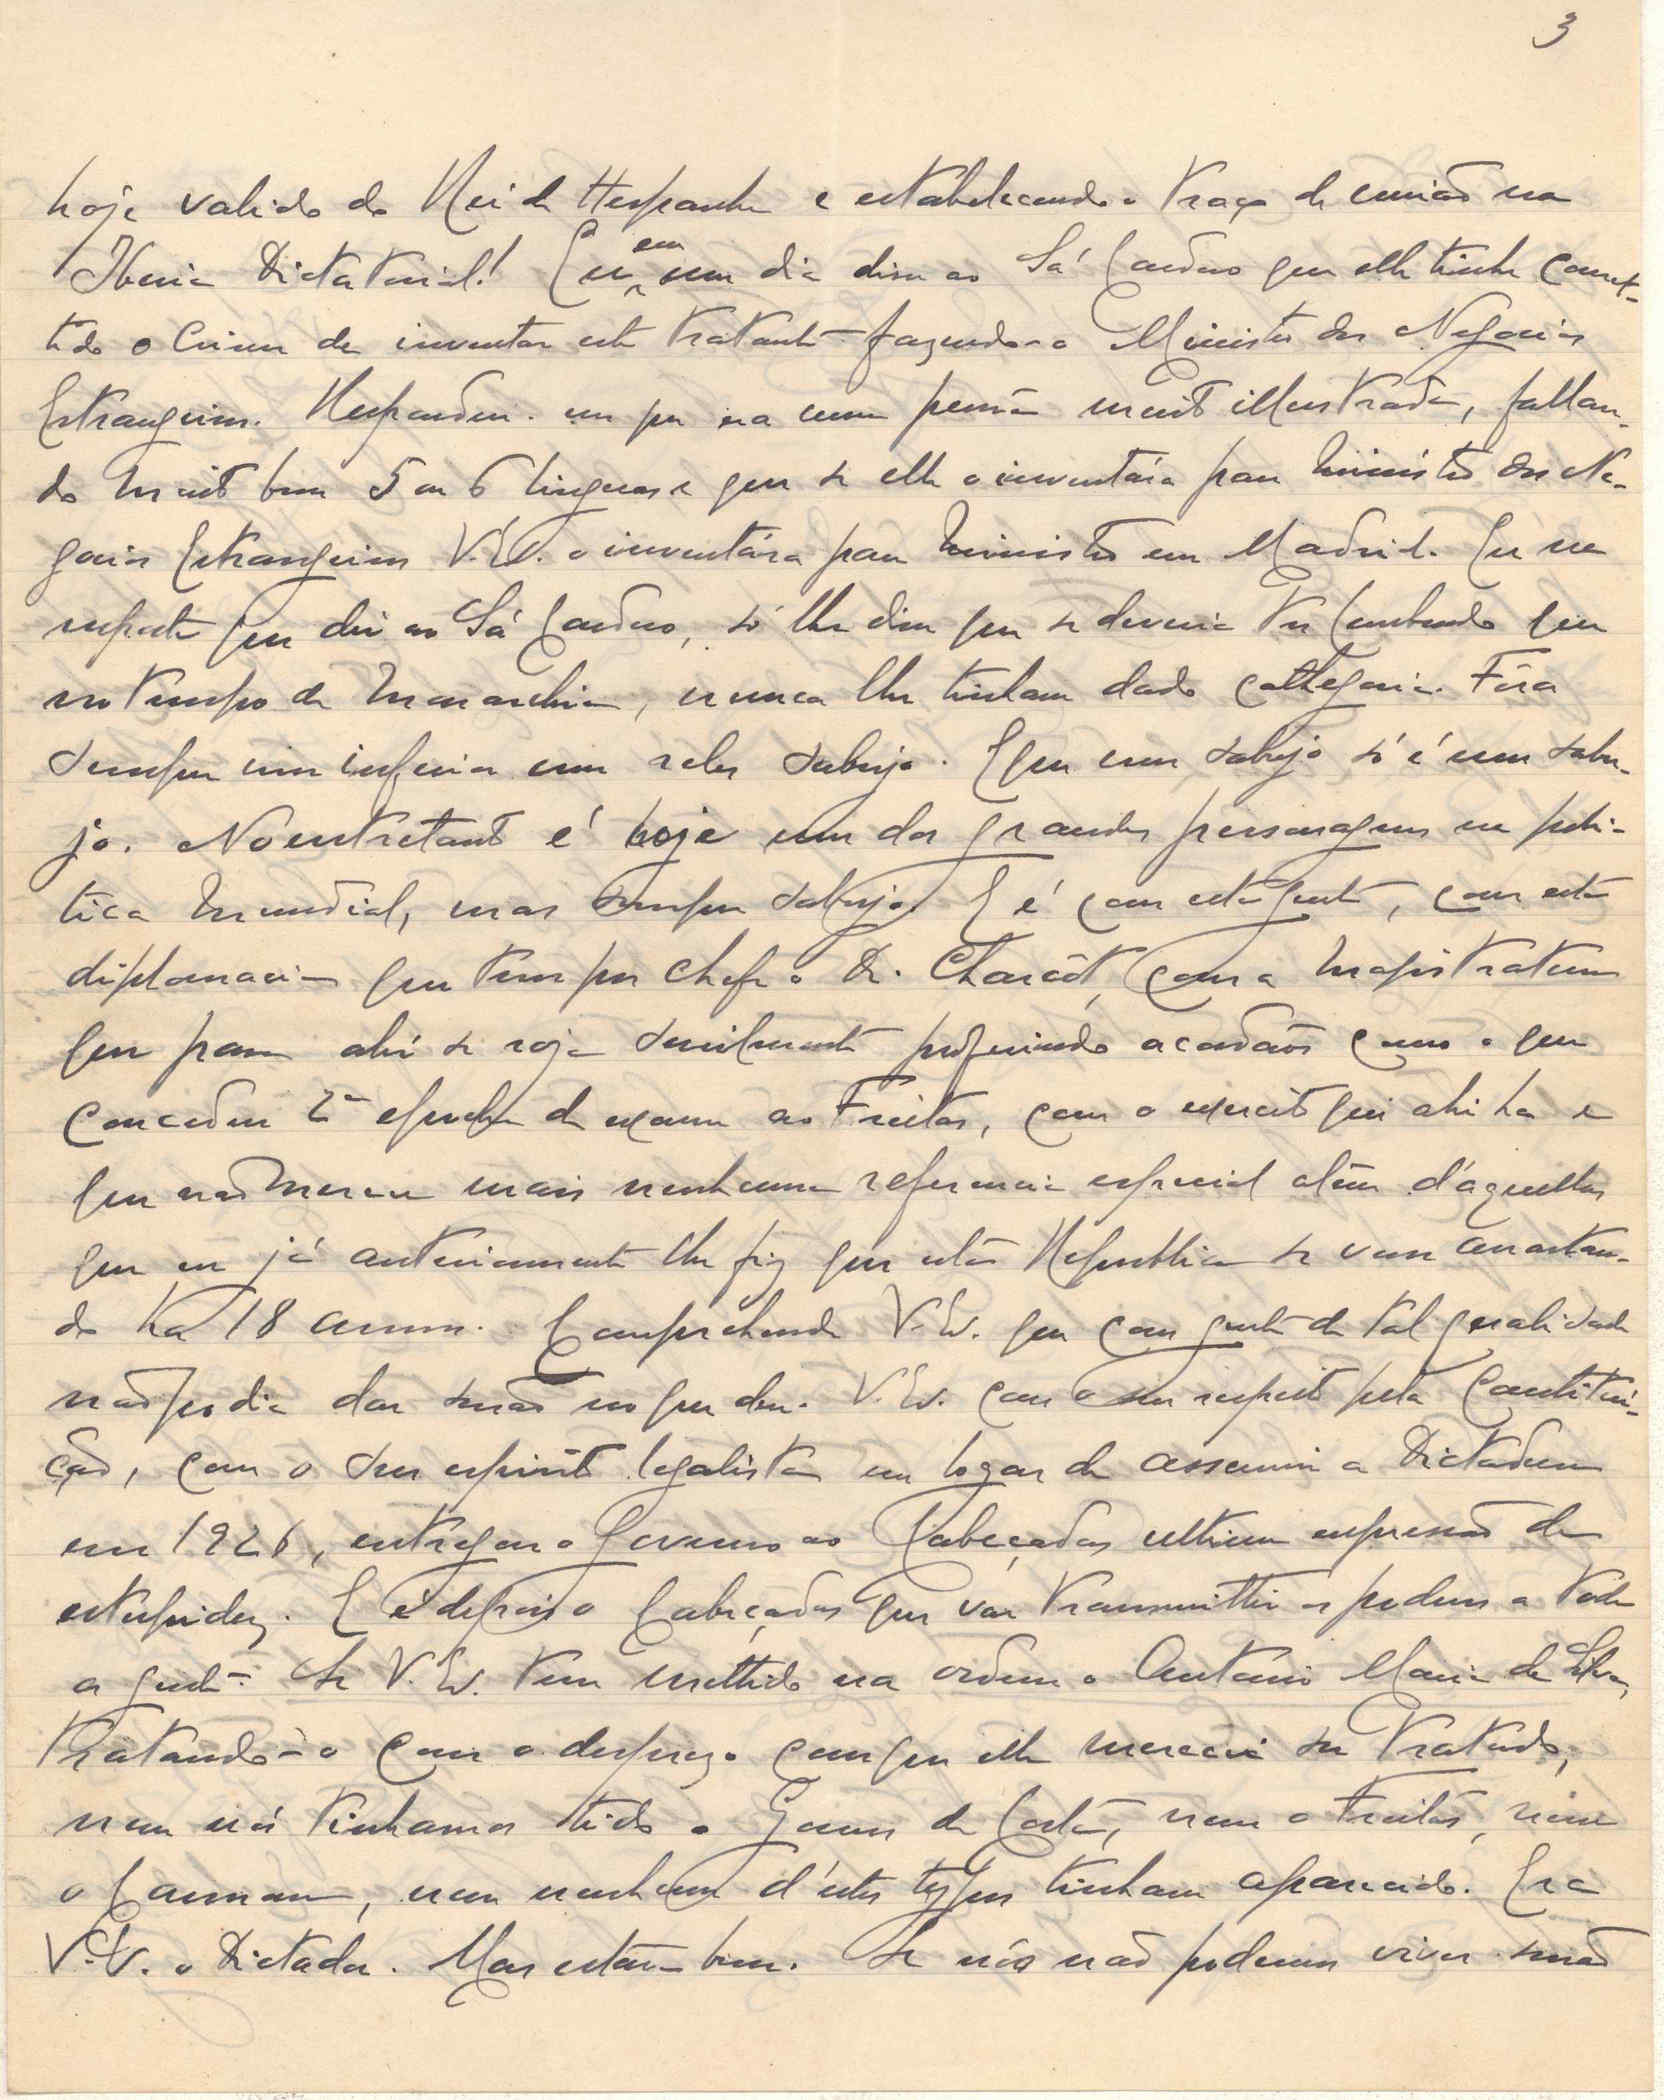 3
hoje valido do Rei de Hespanha e estabelecendo o traço de união na
Iberia Dictatorial! Eu em um dia disse ao Sá Cardoso que elle tinha comet-
tido o crime de inventar este tratante fazendo-o Ministro dos Negocios
Estrangeiros. Respondeu-me que era uma pessôa muito illustrada, fallan-
do muito bem 5 ou 6 linguas e que se elle o inventára para Ministro dos Ne-
gocios Estrangeiros V. Ex. o inventára para Ministro em Madrid. Eu na
resposta que dei ao Sá Cardoso, só lhe disse que se deveria ter lembrado que
no tempo da Monarchia, nunca lhe tinham dado cathegoria. Fôra
sempre um inferior um reles sabujo. E que um sabujo só é um sabu-
jo. No entretanto é hoje um dos grandes personagens na poli-
tica Mundial, mas sempre sabujo. E é com esta gente, com esta
diplomacia que tem por chefe o Dr. Charcôt, com a Magistratura
que para ahi se roja servilmente proferindo acordãos como o que
concedeu 2ª epocha de exame ao Freitas, com o exercito que ahi ha e
que não merece mais nenhuma referencia especial alêm d'aquellas
que eu já anteriormente lhe fiz que esta Republica se vem arrastan-
do ha 18 annos. Comprehende V. Ex. que com gente de tal qualidade
não podia dar senão no que deu. V. Ex. com o seu respeito pela Constitui-
ção, com o seu espirito legalista em logar de assumir a Dictadura
em 1926, entregou o Governo ao Cabeçadas ultima expressão da
estupidez. E é depois o Cabeçadas que vae transmittir os poderes a toda
a gente. Se V. Ex. tem mettido na ordem o Antonio Maria da Silva,
tratando-o com o desprezo com que elle merecia ser tratado,
nem nós tinhamos tido o Gomes da Costa, nem o Freitas, nem
o Carmona, nem nenhum d'estes typos tinham aparecido. Era
V. Ex. o Dictador. Mas está bem. Se nós não podemos viver senão